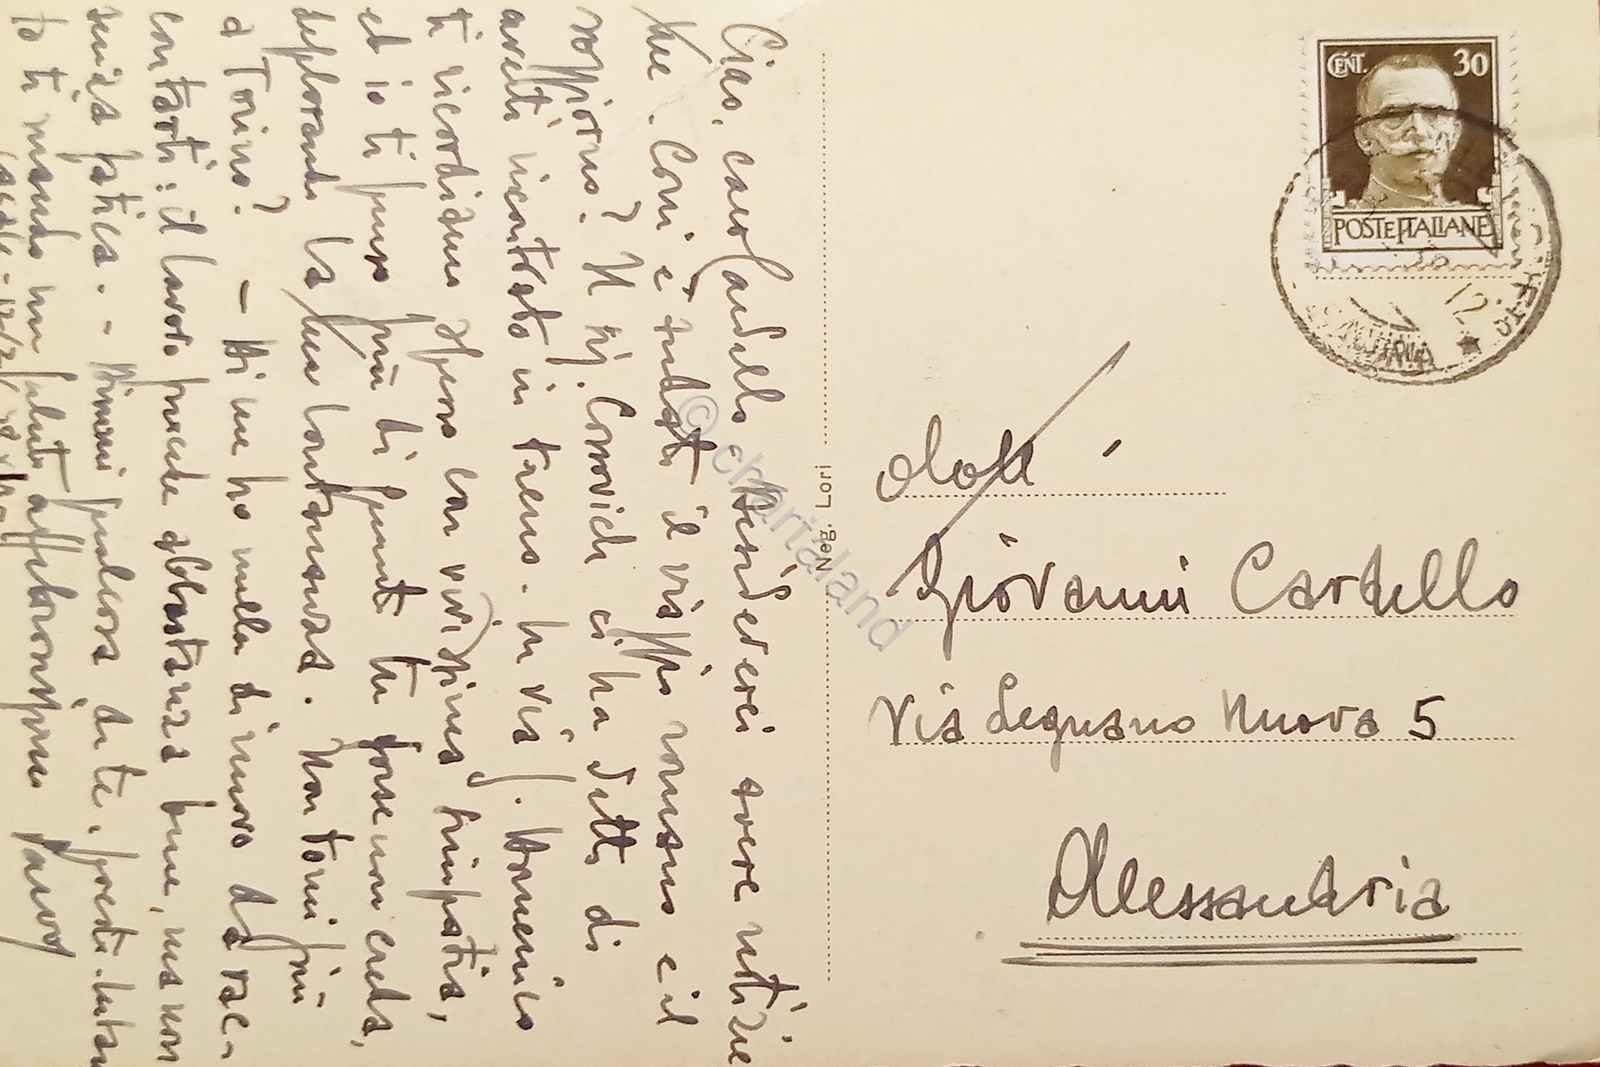 Ciao, caro Cardello, desidererei avere notizie
tue. Com'è andato il viaggio romano e il
soggiorno? Il sig. Cossovich ci ha detto di
averti incontrato in treno. In via S. Domenico
ti ricordiamo spesso con vivissima simpatia,
ed io ti penso più di quanto tu forse non creda,
deplorando la tua lontananza. Non torni più
a Torino? - Di me ho nulla di nuovo da rac-
contarti: il lavoro procede abbastanza bene, ma non
senza fatica. - Dimmi qualcosa di te, presto. Intan
to ti mando un saluto affettuosissimo
CENT. 30
POSTE ITALIANE
Dott.
Giovanni Cardello
Via Legnano Nuova 5
Alessandria
Neg. Lori
© chartaland